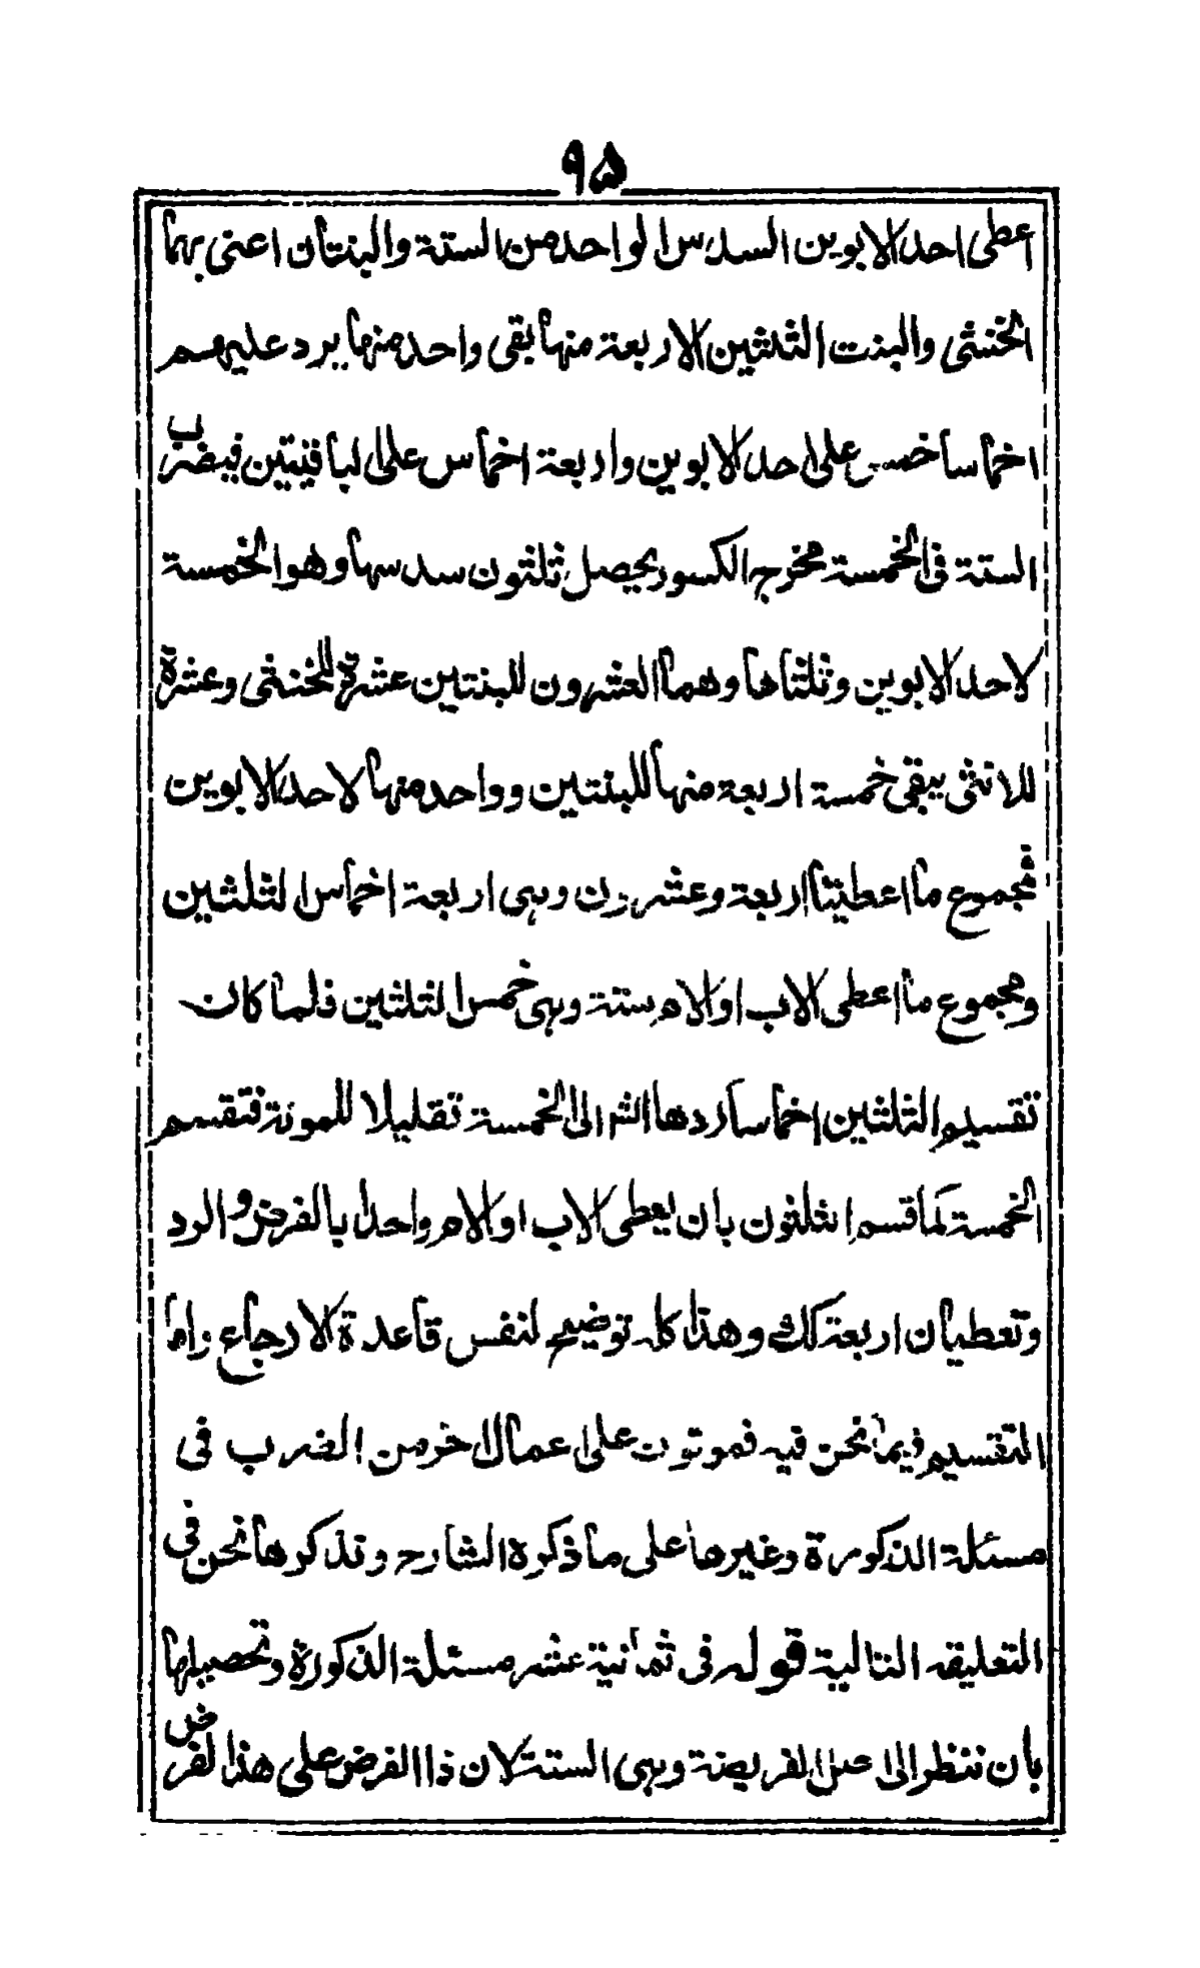 ۹۵
اعطى احد الابوين السدس الواحد من الستة والبنتان اعنى بهما
الخنثى والبنت الثلثين الاربعة منها بقى واحد منها يرد عليهم
اخماسا خمس على احد الابوين واربعة اخماس على الباقيتين فيضرب
الستة فى الخمسة مخرج الكسور يحصل ثلثون سدسها وهو الخمسة
لاحد الابوين وثلثاها وهما العشرون للبنتين عشرة للخنثى وعشرة
للانثى يبقى خمسة اربعة منها للبنتين وواحد منها لاحد الابوين
فمجموع ما اعطيتا اربعة وعشرون وهى اربعة اخماس الثلثين
ومجموع ما اعطى الاب او الام ستة وهى خمس الثلثين فلما كان
تقسيم الثلثين اخماسا ردها الش الى الخمسة تقليلا للمونة فتقسم
الخمسة كما قسم الثلثون بان يعطى الاب او الام واحدا بالفرض والرد
وتعطيان اربعة كك وهذا كله توضيح لنفس قاعدة الارجاع واما
التقسيم فيما نحن فيه فموقوف على اعمال اخر من الضرب فى
مسئلة المذكورة وغيرها على ما ذكره الشارح ونذكرها نحن فى
التعليقه التالية قوله فى ثمانية عشر مسئلة المذكورة وتحصيلها
بان ننظر الى اصل الفريضة وهى الستة لان ذا الفرض على هذا الفرض